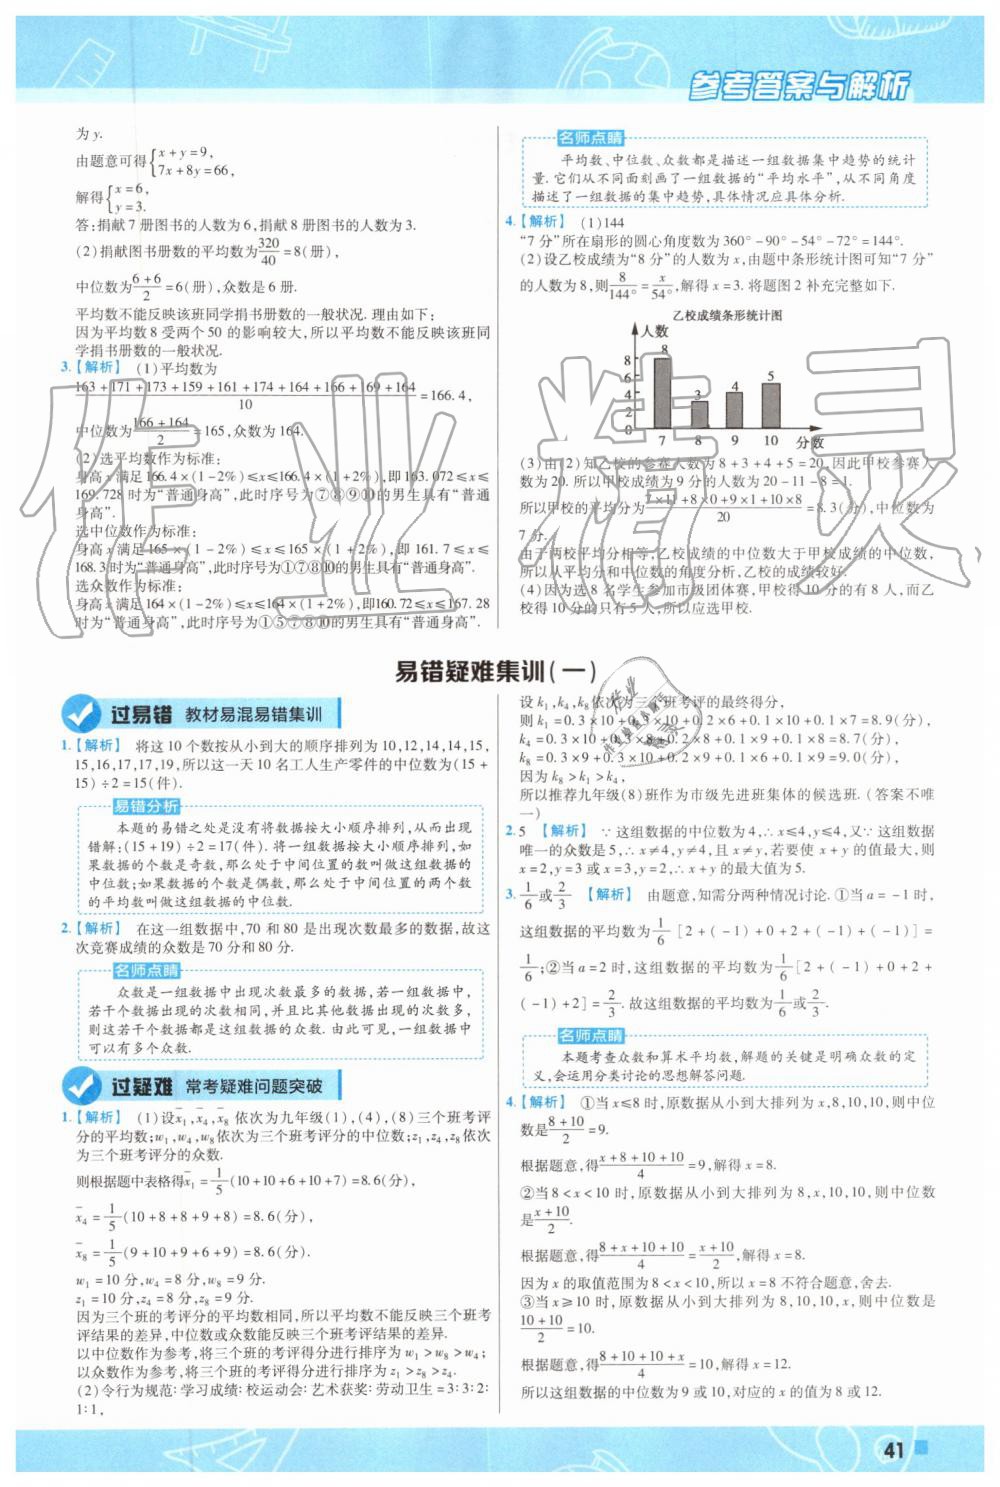 参考答案与解析
为 y.
由题意可得{x+y=9,
7x+8y=66,
解得{x=6,
y=3.
答:捐献 7 册图书的人数为 6,捐献 8 册图书的人数为 3.
(2)捐献图书册数的平均数为320/40=8(册),
中位数为(6+6)/2=6(册),众数是 6 册.
平均数不能反映该班同学捐书册数的一般状况. 理由如下:
因为平均数 8 受两个 50 的影响较大,所以平均数不能反映该班同
学捐书册数的一般状况.
3.【解析】 (1)平均数为
(163+171+173+159+161+174+164+166+169+164)/10=166.4,
中位数为(166+164)/2=165,众数为 164.
(2)选平均数作为标准:
身高 x 满足 166.4×(1-2%)≤x≤166.4×(1+2%),即 163.072≤x≤
169.728 时为“普通身高”,此时序号为⑦⑧⑨⑩的男生具有“普通
身高”.
选中位数作为标准:
身高 x 满足 165×(1-2%)≤x≤165×(1+2%),即 161.7≤x≤
168.3 时为“普通身高”,此时序号为①⑦⑧⑩的男生具有“普通身高”.
选众数作为标准:
身高 x 满足 164×(1-2%)≤x≤164×(1+2%),即160.72≤x≤167.28
时为“普通身高”,此时序号为①⑤⑦⑧⑩的男生具有“普通身高”.
名师点睛
平均数、中位数、众数都是描述一组数据集中趋势的统计
量. 它们从不同面刻画了一组数据的“平均水平”,从不同角度
描述了一组数据的集中趋势,具体情况应具体分析.
4.【解析】 (1)144
“7 分”所在扇形的圆心角度数为 360°-90°-54°-72°=144°.
(2)设乙校成绩为“8 分”的人数为 x,由题中条形统计图可知“7 分”
的人数为 8,则8/144°=x/54°,解得 x=3. 将题图 2 补充完整如下.
乙校成绩条形统计图
人数
8
8
6
4
2
0
3
4
5
7 8 9 10 分数
(3)由(2)知乙校的参赛人数为 8+3+4+5=20,因此甲校参赛人
数为 20. 所以甲校成绩为 9 分的人数为 20-11-8=1.
所以甲校的平均分为(7×11+8×0+9×1+10×8)/20=8.3(分),中位数为
7 分.
由于两校平均分相等,乙校成绩的中位数大于甲校成绩的中位数,
所以从平均分和中位数的角度分析,乙校的成绩较好.
(4)因为选 8 名学生参加市级团体赛,甲校得 10 分的有 8 人,而乙
校得 10 分的只有 5 人,所以应选甲校.
易错疑难集训(一)
过易错 教材易混易错集训
1.【解析】 将这 10 个数按从小到大的顺序排列为 10,12,14,14,15,
15,16,17,17,19,所以这一天 10 名工人生产零件的中位数为(15+
15)÷2=15(件).
易错分析
本题的易错之处是没有将数据按大小顺序排列,从而出现
错解:(15+19)÷2=17(件). 将一组数据按大小顺序排列,如
果数据的个数是奇数,那么处于中间位置的数叫做这组数据的
中位数;如果数据的个数是偶数,那么处于中间位置的两个数
的平均数叫做这组数据的中位数.
2.【解析】 在这一组数据中,70 和 80 是出现次数最多的数据,故这
次竞赛成绩的众数是 70 分和 80 分.
名师点睛
众数是一组数据中出现次数最多的数据,若一组数据中,
若干个数据出现的次数相同,并且比其他数据出现的次数多,
则这若干个数据都是这组数据的众数. 由此可见,一组数据中
可以有多个众数.
过疑难 常考疑难问题突破
1.【解析】 (1)设x̄₁,x̄₄,x̄₈ 依次为九年级(1),(4),(8)三个班考评
分的平均数;w₁,w₄,w₈依次为三个班考评分的中位数;z₁,z₄,z₈依次
为三个班考评分的众数.
则根据题中表格得x̄₁=1/5(10+10+6+10+7)=8.6(分),
x̄₄=1/5(10+8+8+9+8)=8.6(分),
x̄₈=1/5(9+10+9+6+9)=8.6(分).
w₁=10 分,w₄=8 分,w₈=9 分.
z₁=10 分,z₄=8 分,z₈=9 分.
因为三个班的考评分的平均数相同,所以平均数不能反映三个班考
评结果的差异,中位数或众数能反映三个班考评结果的差异.
以中位数作为参考,将三个班的考评得分进行排序为 w₁>w₈>w₄;
以众数作为参考,将三个班的考评得分进行排序为 z₁>z₈>z₄.
(2)令行为规范:学习成绩:校运动会:艺术获奖:劳动卫生=3:3:2:
1:1,
设 k₁,k₄,k₈ 依次为三个班考评的最终得分,
则 k₁=0.3×10+0.3×10+0.2×6+0.1×10+0.1×7=8.9(分),
k₄=0.3×10+0.3×8+0.2×8+0.1×9+0.1×8=8.7(分),
k₈=0.3×9+0.3×10+0.2×9+0.1×6+0.1×9=9.0(分),
因为 k₈>k₁>k₄,
所以推荐九年级(8)班作为市级先进班集体的候选班. (答案不唯
一)
2. 5 【解析】 ∵这组数据的中位数为 4,∴x≤4,y≤4,又∵这组数据
唯一的众数是 5,∴x≠4,y≠4,且 x≠y,若要使 x+y 的值最大,则
x=2,y=3 或 x=3,y=2,∴x+y 的最大值为 5.
3. 1/6或2/3 【解析】 由题意,知需分两种情况讨论. ①当 a=-1 时,
这组数据的平均数为1/6[2+(-1)+0+2+(-1)+(-1)]=
1/6;②当 a=2 时,这组数据的平均数为1/6[2+(-1)+0+2+
(-1)+2]=2/3. 故这组数据的平均数为1/6或2/3.
名师点睛
本题考查众数和算术平均数,解题的关键是明确众数的定
义,会运用分类讨论的思想解答问题.
4.【解析】 ①当 x≤8 时,原数据从小到大排列为 x,8,10,10,则中位
数是(8+10)/2=9.
根据题意,得(x+8+10+10)/4=9,解得 x=8.
②当 8<x<10 时,原数据从小到大排列为 8,x,10,10,则中位数
是(x+10)/2.
根据题意,得(8+x+10+10)/4=(x+10)/2,解得 x=8.
因为 x 的取值范围为 8<x<10,所以 x=8 不符合题意,舍去.
③当 x≥10 时,原数据从小到大排列为 8,10,10,x,则中位数是
(10+10)/2=10.
根据题意,得(8+10+10+x)/4=10,解得 x=12.
所以这组数据的中位数为 9 或 10,对应的 x 的值为 8 或 12.
41
作业精灵